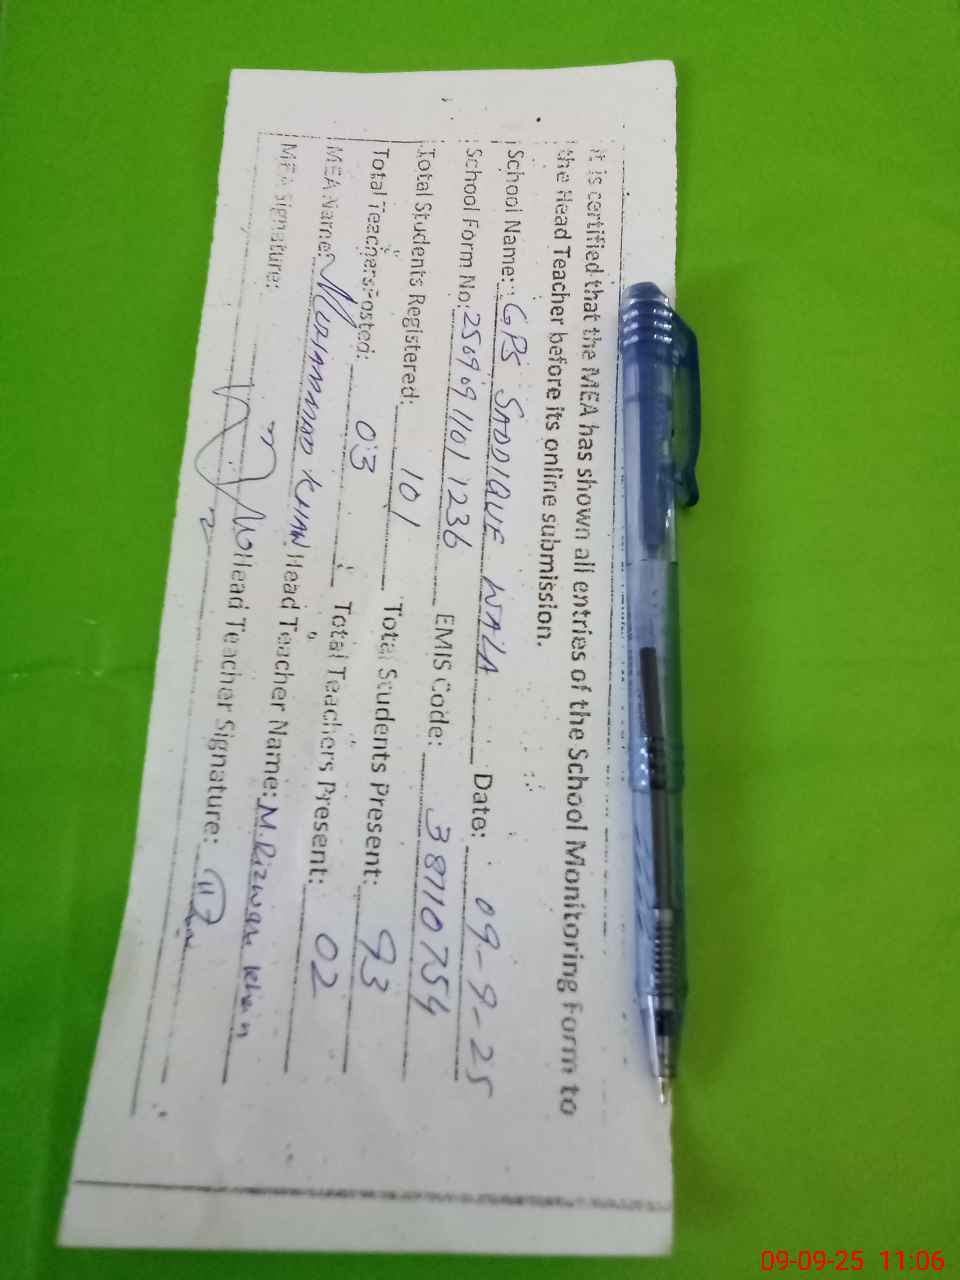 It is certified that the MEA has shown all entries of the School Monitoring Form to
the Head Teacher before its online submission.
School Name: GPS SADDIQUE WALA Date: 09-9-25
School Form No: 25090911011236 EMIS Code: 38110754
Total Students Registered: 101 Total Students Present: 93
Total Teachers Posted: 03 Total Teachers Present: 02
MEA Name: MUHAMMAD KHAN Head Teacher Name: M. Rizwan Khan
MEA Signature: Head Teacher Signature:
09-09-25 11:06